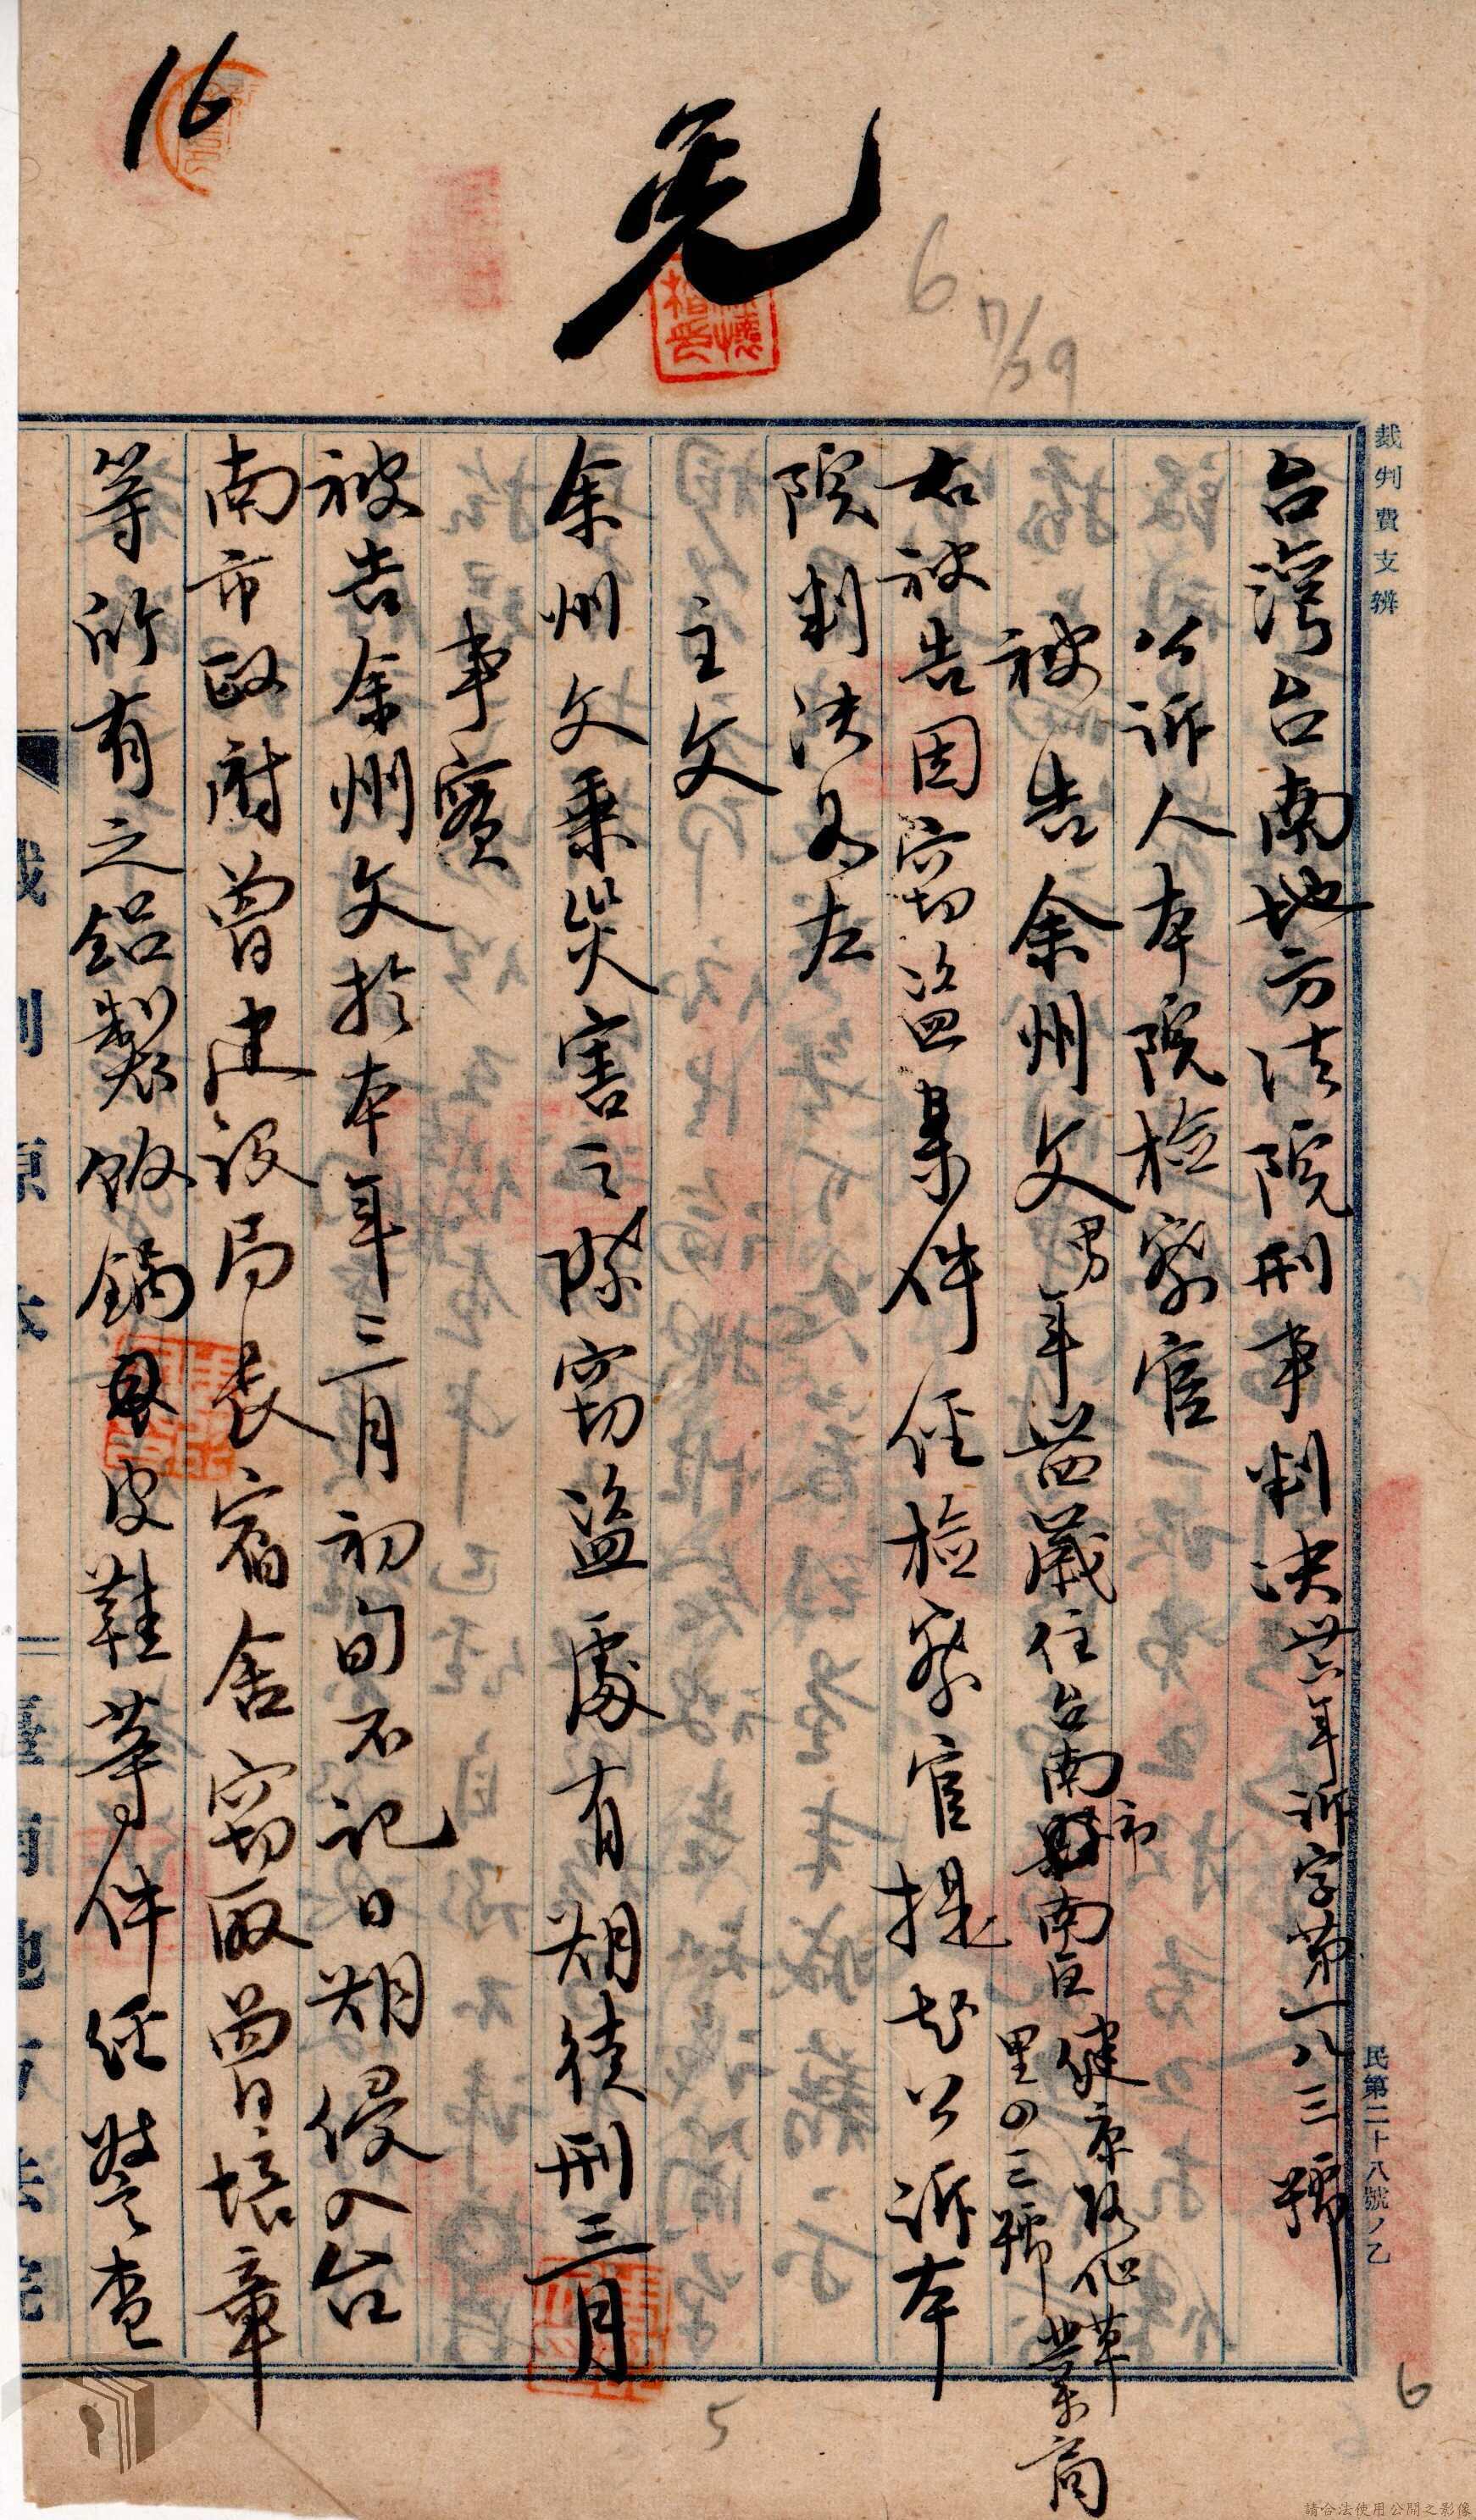 16
免
6
7/39
裁判費支辨
民第二十八號ノ乙
台灣台南地方法院刑事判決 卅六年訴字第一八三號
公訴人本院檢察官
被告余州文 男年卌四歲住台南市南區健康路仁華里四三號業商
右被告因竊盜案件經檢察官提起公訴本
院判決如左
主文
余州文乘災害之際竊盜處有期徒刑三月
事實
被告余州文於本年三月初旬不記日期侵入台
南市政府曾建設局長宿舍竊取曾培章
等所有之鋁製飯鍋皮鞋等件經警查
裁判原本
臺南地方法院
5
6
請合法使用公開之影像